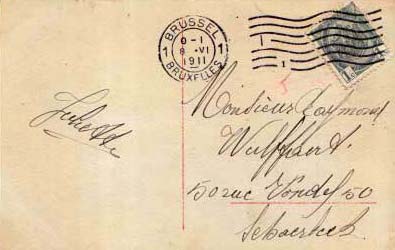 BRUSSEL
0-I
8 -VI
1911
1 1
BRUXELLES
1
Juliette
Monsieur Raymond
Wulfaert.
50 rue Vondel 50
Schaerbeek